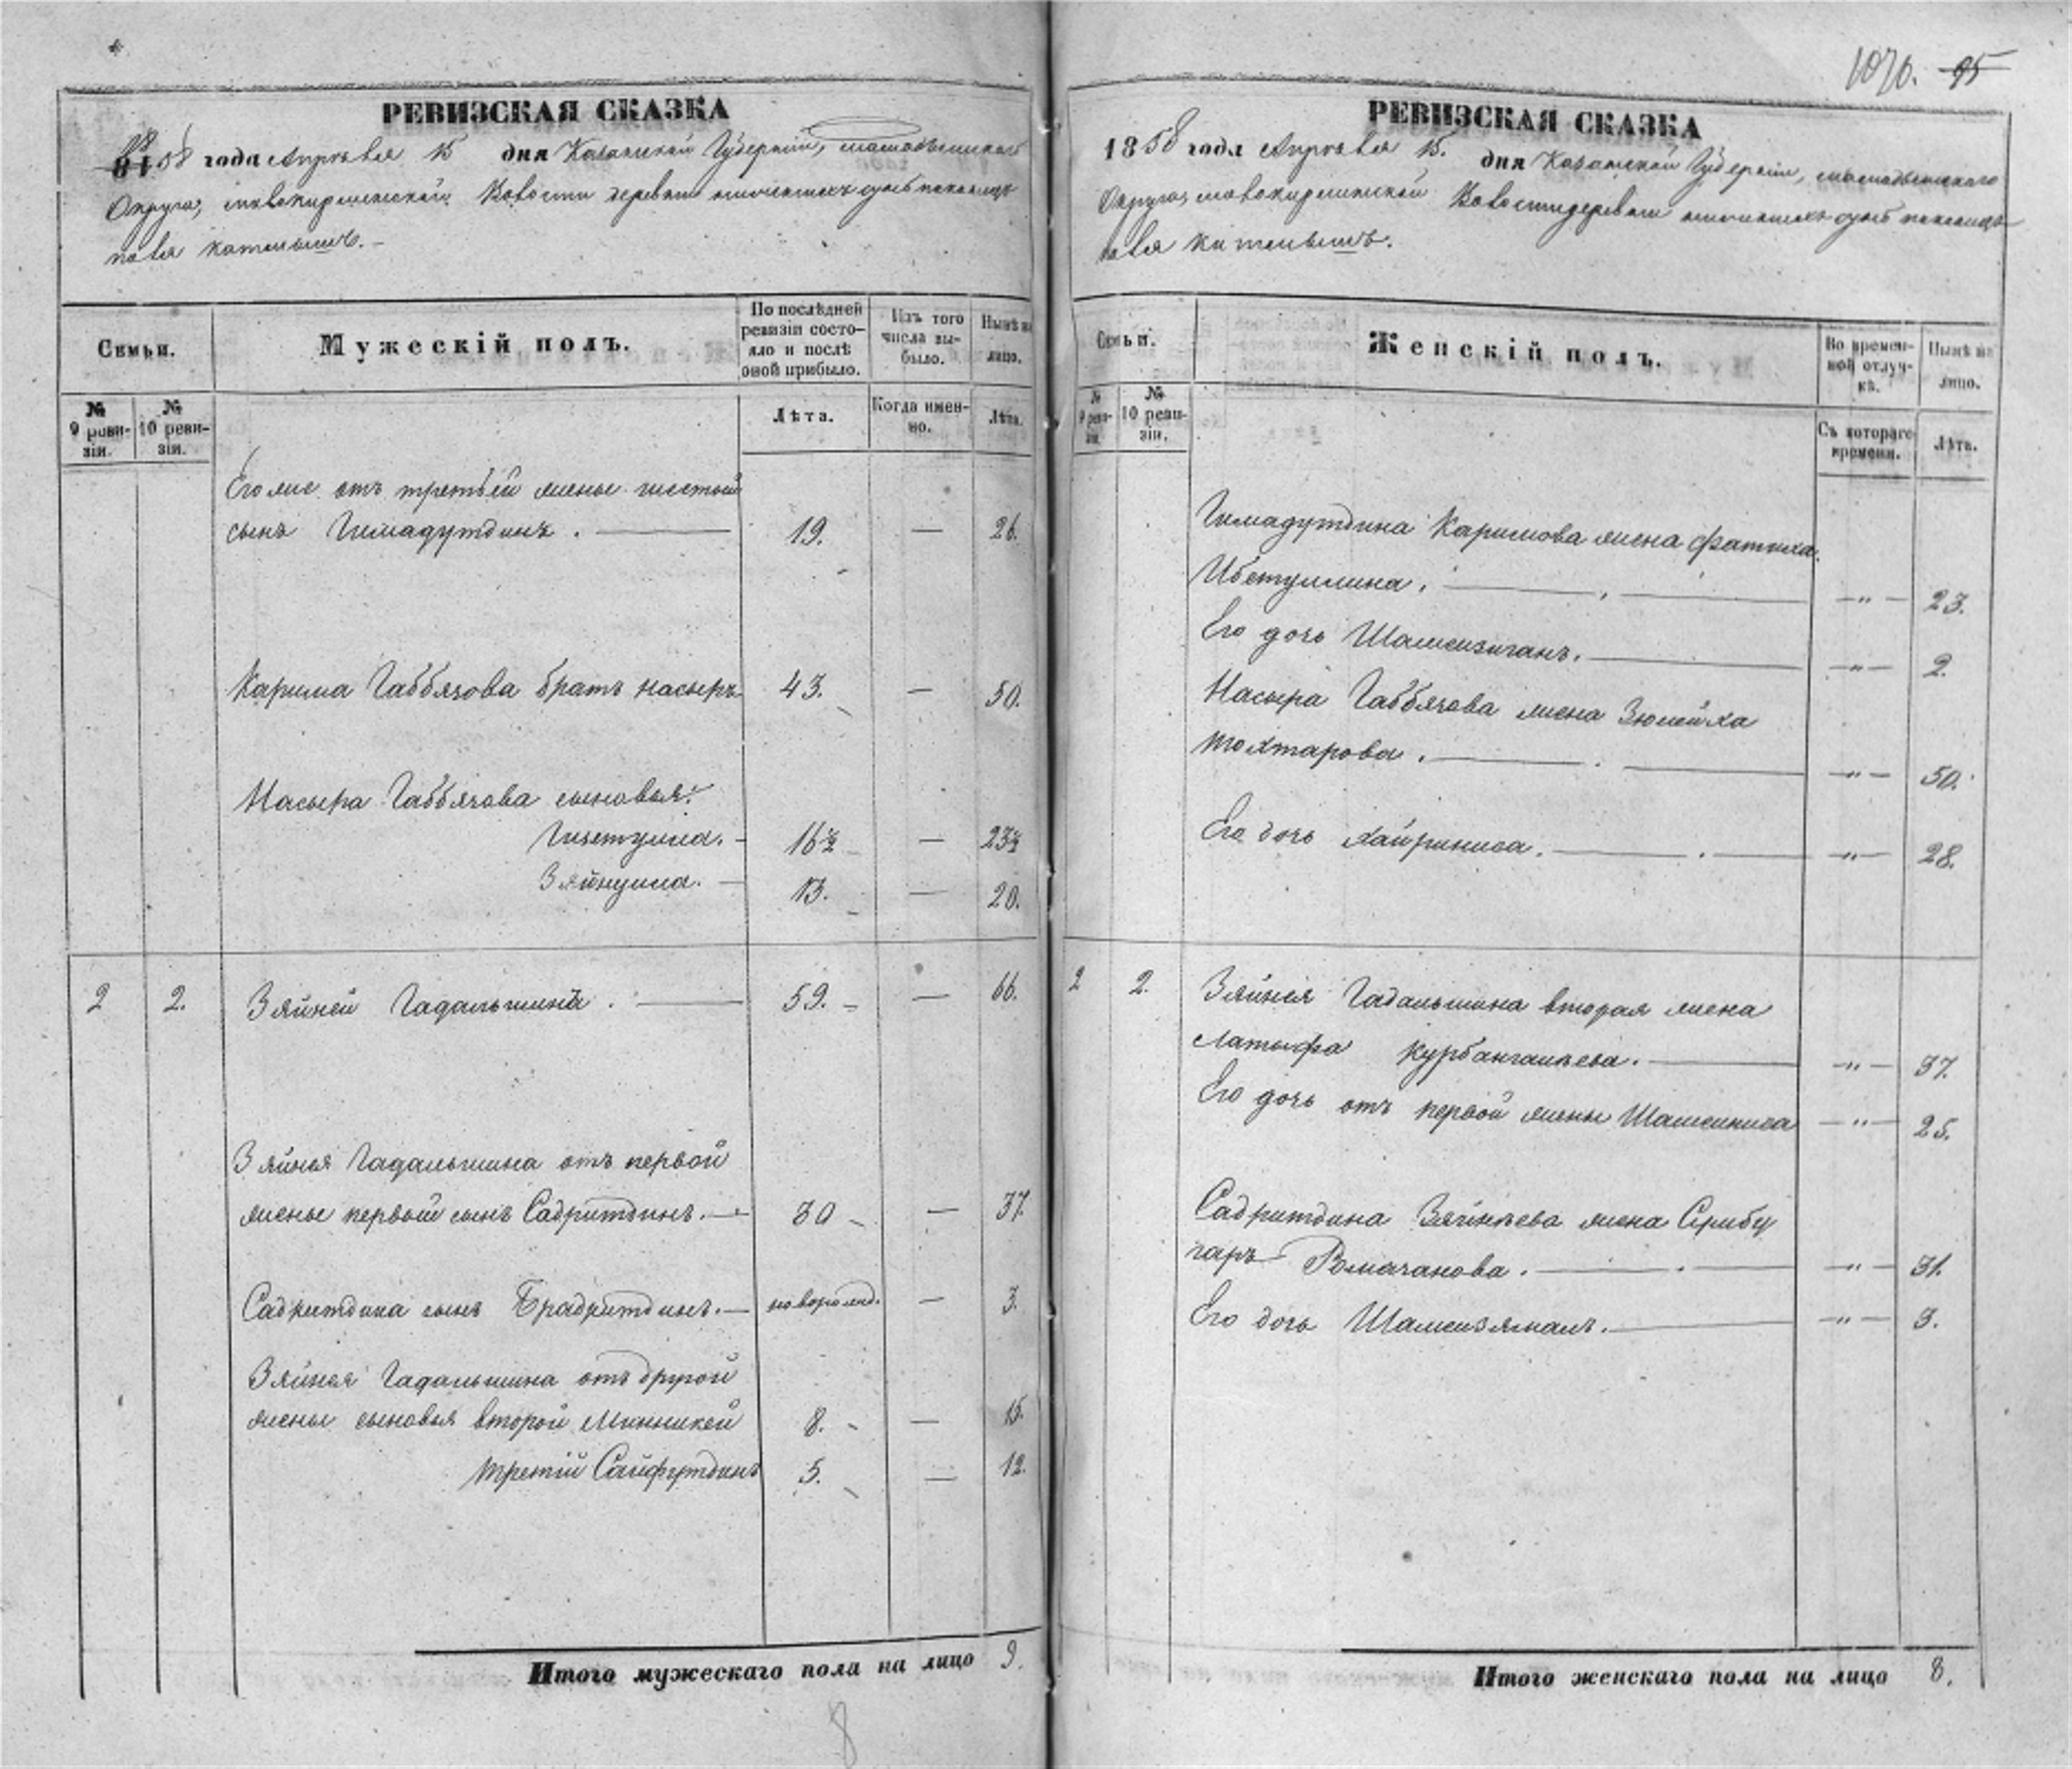 1070. 95
РЕВИЗСКАЯ СКАЗКА
1858 года Апрѣля 15 дня Казанской Губерніи, мамадышскаго
Округа, Волости деревни
катмышъ.
Семьи.
Мужескій полъ.
По послѣдней ревизіи состояло и послѣ оной прибыло.
Изъ того числа выбыло.
Нынѣ на лицо.
№ 9 ревизіи.
№ 10 ревизіи.
Лѣта.
Когда именно.
Лѣта.
Его же отъ третьей жены шестый
сынъ Гимадутдинъ. 19. — 26.
Карима Габбясова братъ насыръ 43. — 50.
Насыра Габбясова сыновья:
Гизетулла. 16½ — 23½
Зяйнулла. 13. — 20.
2 2. Зяйней Гадальшинъ. 59. — 66.
Зяйнея Гадальшина отъ первой
жены первый сынъ Садритдинъ. 30 — 37.
Садритдина сынъ Бradритдинъ. новорожд. — 3.
Зяйнея Гадальшина отъ другой
жены сыновья второй Минникей 8. — 15.
третій Сайфутдинъ 5. — 12.
Итого мужескаго пола на лицо 9.
8
РЕВИЗСКАЯ СКАЗКА
1858 года Апрѣля 15. дня Казанской Губерніи, мамадышскаго
Округа, Волости деревни
катмышъ.
Семьи.
Женскій полъ.
Во временной отлучкѣ.
Нынѣ на лицо.
№ 9 ревизіи.
№ 10 ревизіи.
Съ котораго времени.
Лѣта.
Гимадутдина Каримова жена фатиха
Ибетуллина. — " — 23.
Его дочь Шамсизиганъ. — " — 2.
Насыра Габбясова жена Зюлейха
тохтарова. — " — 50.
Его дочь хайриниса. — " — 28.
2 2. Зяйнея Гадальшина вторая жена
Латыфа Курбангалѣева. — " — 37.
Его дочь отъ первой жены Шамсиниса — " — 25.
Садритдина Зяйнѣева жена Срибу
гаръ — " — 31.
Его дочь Шамсизямалъ. — " — 9.
Итого женскаго пола на лицо 8.